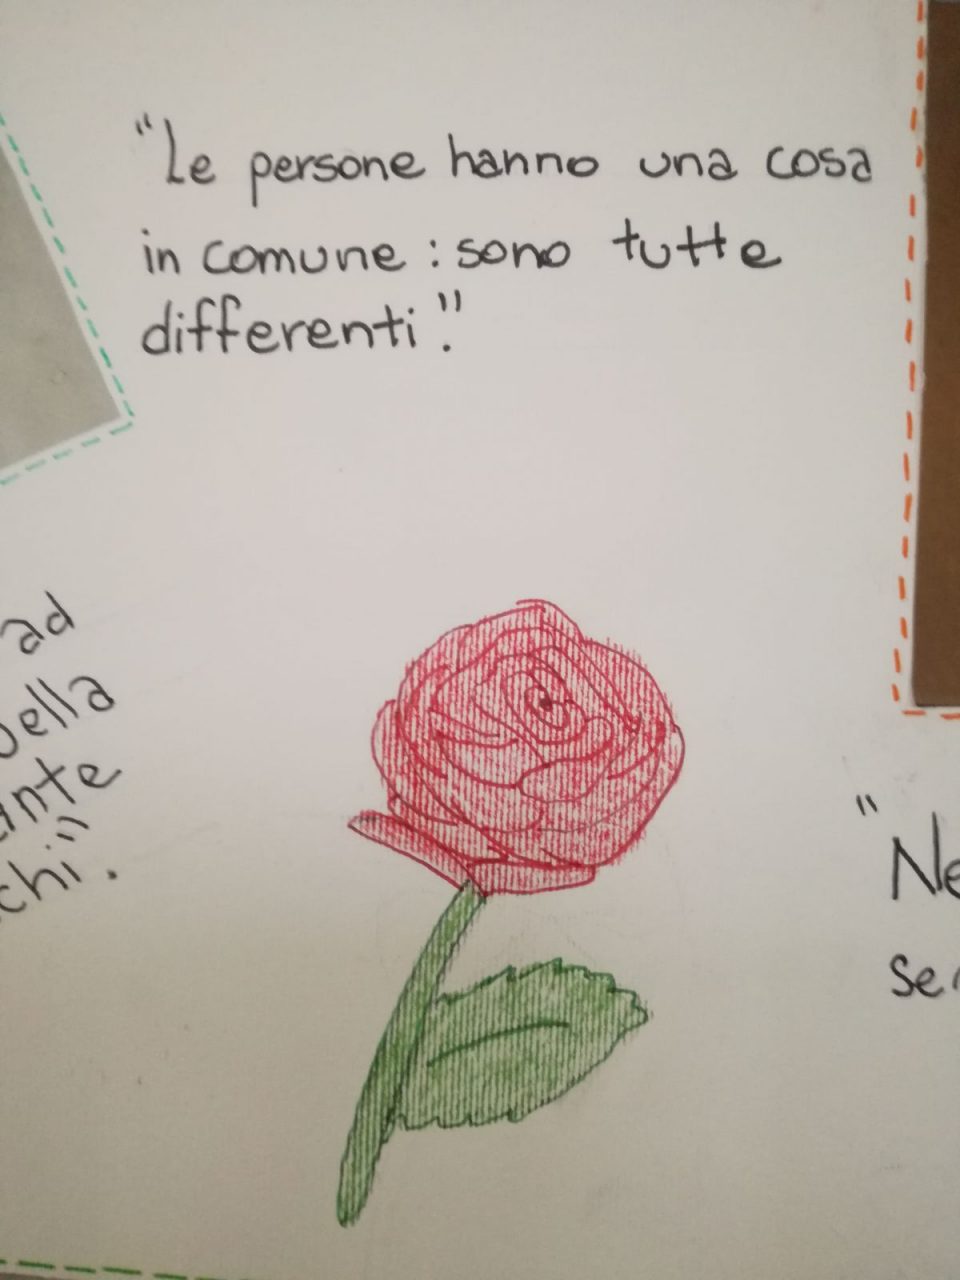 "Le persone hanno una cosa
in comune: sono tutte
differenti."
ad
chi".
"